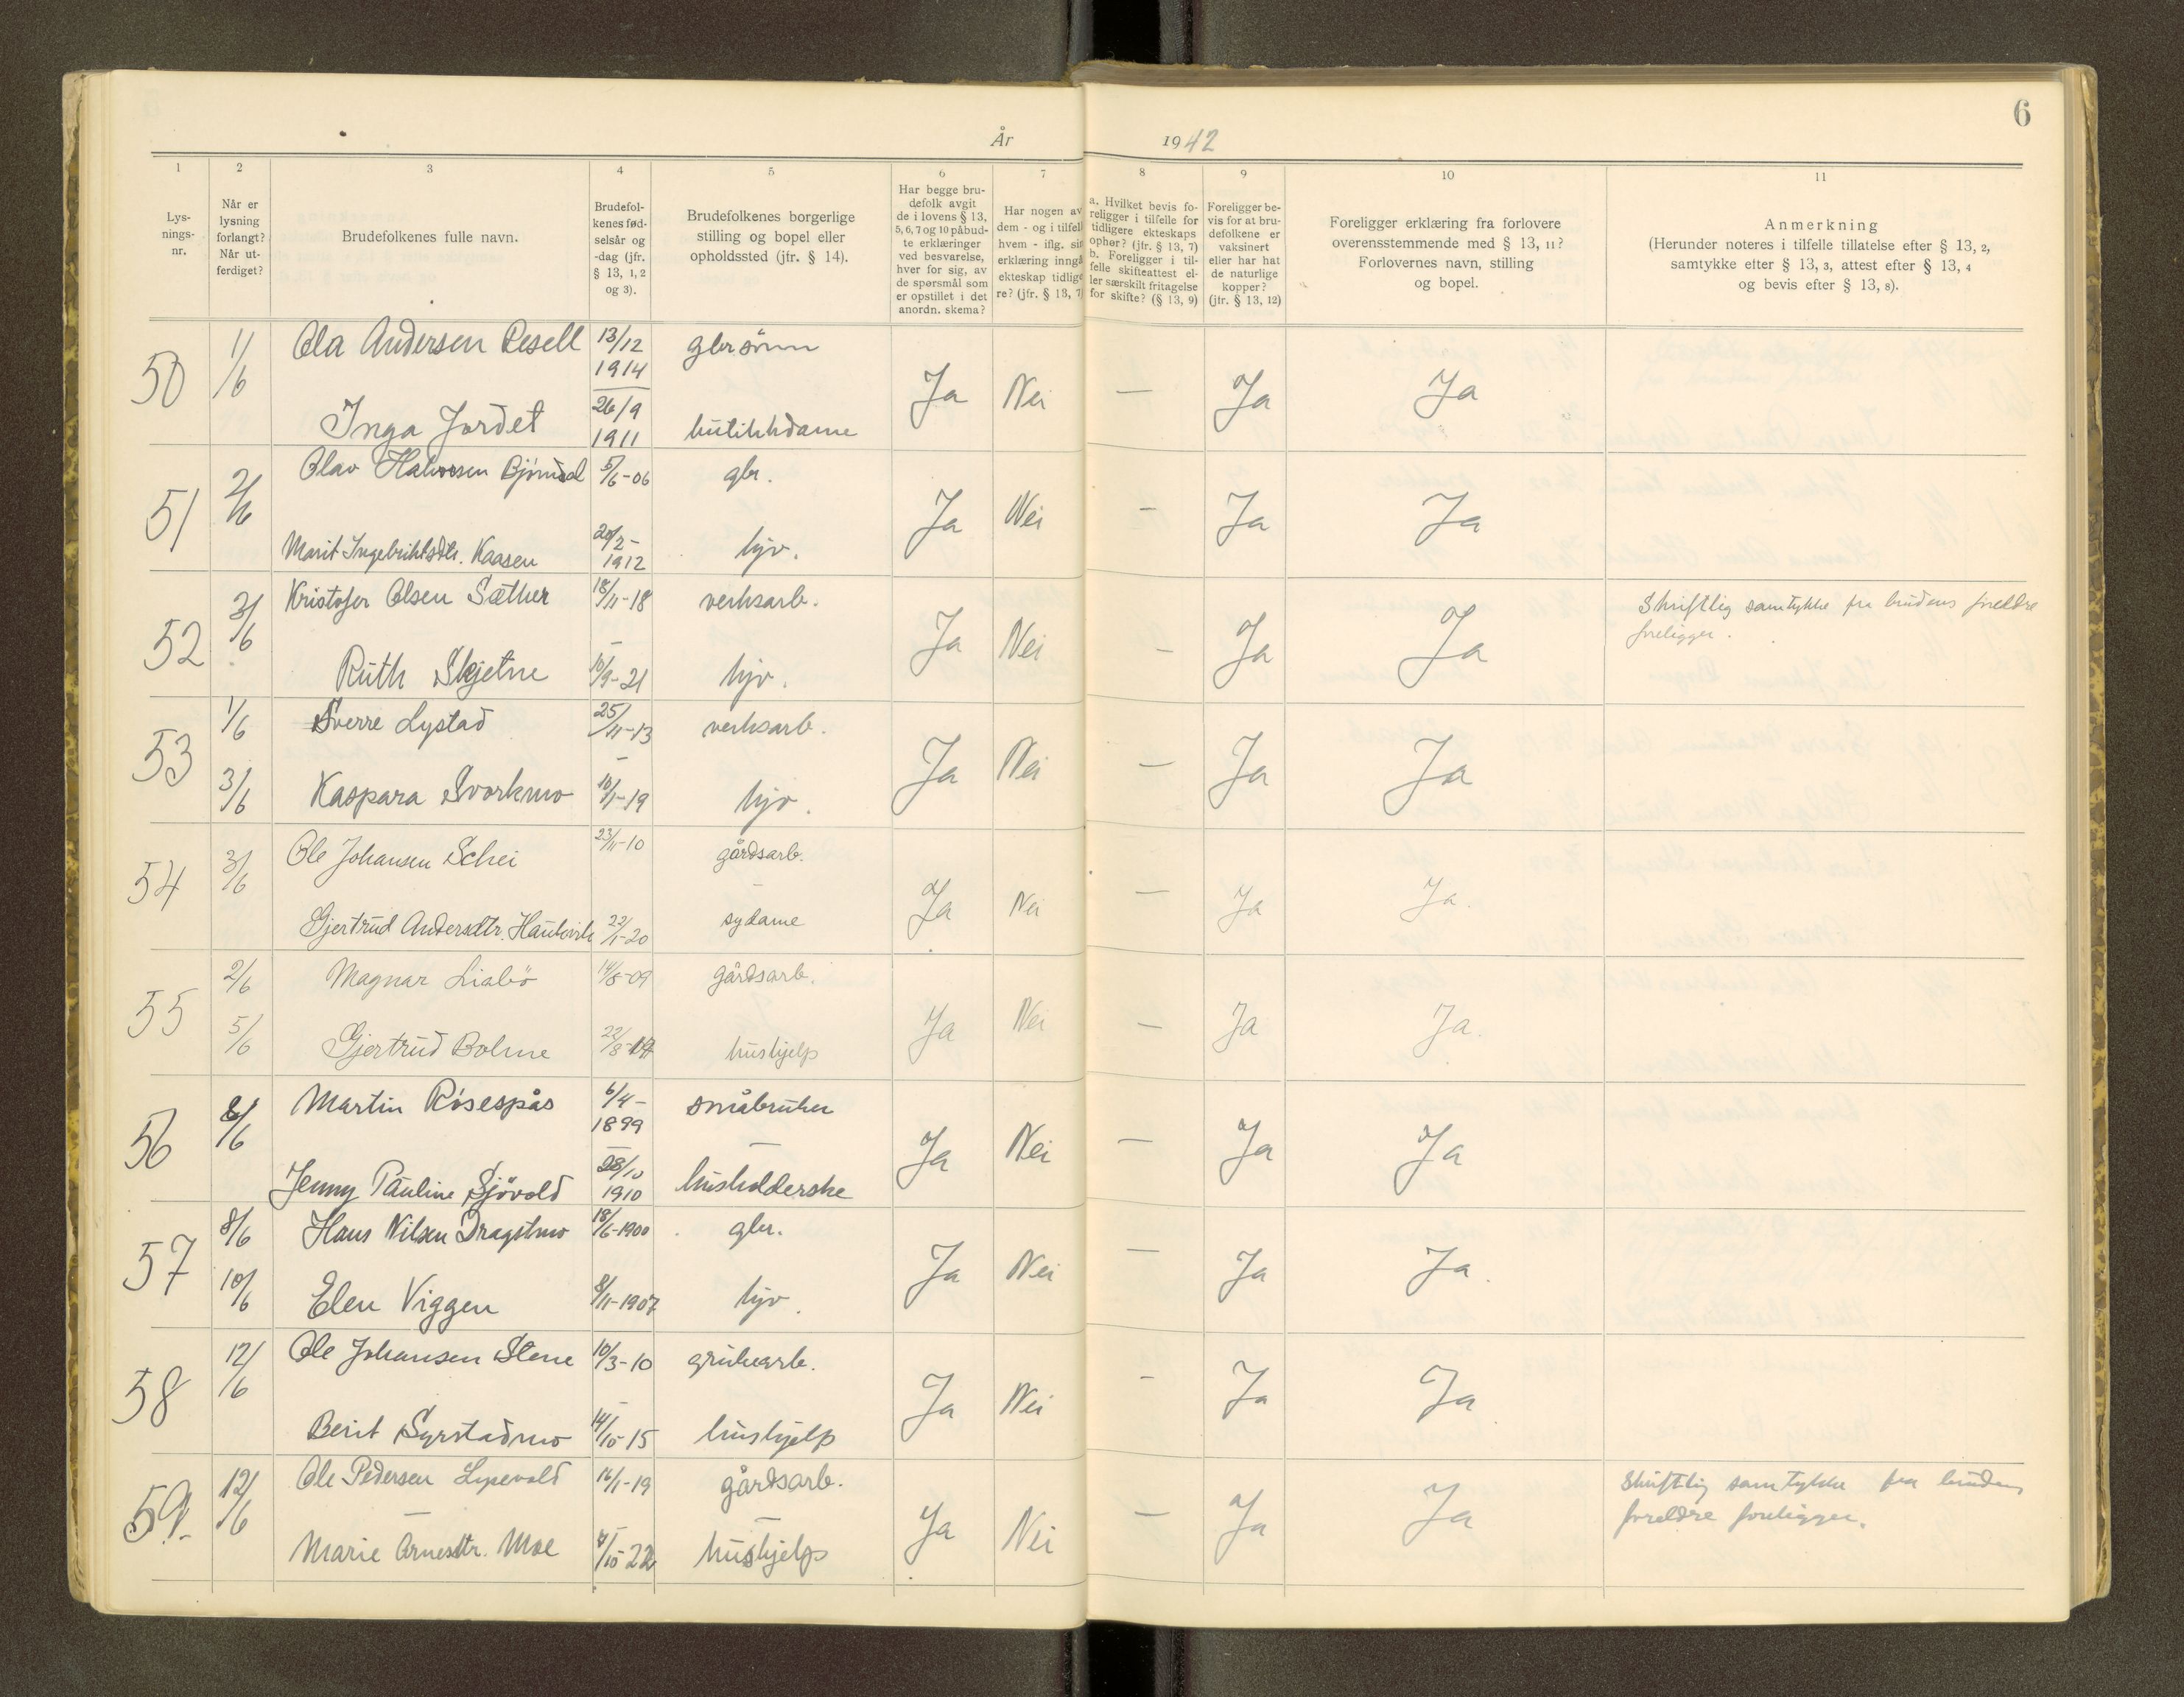 6
År 1942
1 2 3 4 5 6 7 8 9 10 11
Lys-
nings-
nr.
Når er
lysning
forlangt?
Når ut-
ferdiget?
Brudefolkenes fulle navn.
Brudefol-
kenes fød-
selsår og
-dag (jfr.
§ 13, 1, 2
og 3).
Brudefolkenes borgerlige
stilling og bopel eller
opholdssted (jfr. § 14).
Har begge bru-
defolk avgit
de i lovens § 13,
5, 6, 7 og 10 påbud-
te erklæringer
ved besvarelse,
hver for sig, av
de spørsmål som
er opstillet i det
anordn. skema?
Har nogen av
dem - og i tilfell
hvem - iflg. sin
erklæring inngå
ekteskap tidlige
re? (jfr. § 13, 7)
a. Hvilket bevis fo-
religger i tilfelle for
tidligere ekteskaps
ophør? (jfr. § 13, 7)
b. Foreligger i til-
felle skifteattest el-
ler særskilt fritagelse
for skifte? (§ 13, 9)
Foreligger be-
vis for at bru-
defolkene er
vaksinert
eller har hat
de naturlige
kopper?
(jfr. § 13, 12)
Foreligger erklæring fra forlovere
overensstemmende med § 13, 11?
Forlovernes navn, stilling
og bopel.
Anmerkning
(Herunder noteres i tilfelle tillatelse efter § 13, 2,
samtykke efter § 13, 3, attest efter § 13, 4
og bevis efter § 13, 8).
50 1/6 Ola Andersen Resell 13/12 1914 gbr sönn Ja Nei — Ja Ja
Inga Jordet 26/9 1911 butikkdame
51 2/6 Olav Halvorsen 5/6-06 gbr. Ja Nei — Ja Ja
Marit Ingebriktsdtr. Kaasen 20/2-1912 hjv.
52 2/6 Kristofer Olsen Sæther 18/11-18 verksarb. Ja Nei — Ja Ja Skriftlig samtykke fra brudens foreldre
foreligger.
Ruth Skjetne 10/9-21 hjv.
53 1/6 Sverre Lystad 25/11-13 verksarb. Ja Nei — Ja Ja
3/6 Kaspara Svorkmo 10/1-19 hjv.
54 3/6 Ole Johansen Schei 23/11-10 gårdsarb. Ja Nei — Ja Ja.
Gjertrud Andersdtr. 22/1-20 sydame
55 2/6 Magnar Liabö 14/8-09 gårdsarb. Ja Nei — Ja Ja.
5/6 Gjertrud Bolme 22/8 hushjelp
56 8/6 Martin Rösespås 6/4-1899 småbruker Ja Nei — Ja Ja
Jenny Pauline Sjövold 28/10 1910 husholderske
57 8/6 Hans Nilsen Dragstmo 18/6-1900 gbr. Ja Nei — Ja Ja.
10/6 Elen Viggen 8/11-1907 hjv.
58 12/6 Ole Johansen Stene 10/3-10 grubearb. Ja Nei - Ja Ja
Berit Syrstadmo 14/10-15 hushjelp
59. 12/6 Ole Pedersen 16/1-19 gårdsarb. Ja Nei — Ja Ja Skriftlig samtykke fra brudens
foreldre foreligger.
Marie Arnesdtr. Moe 4/10-22 hushjelp